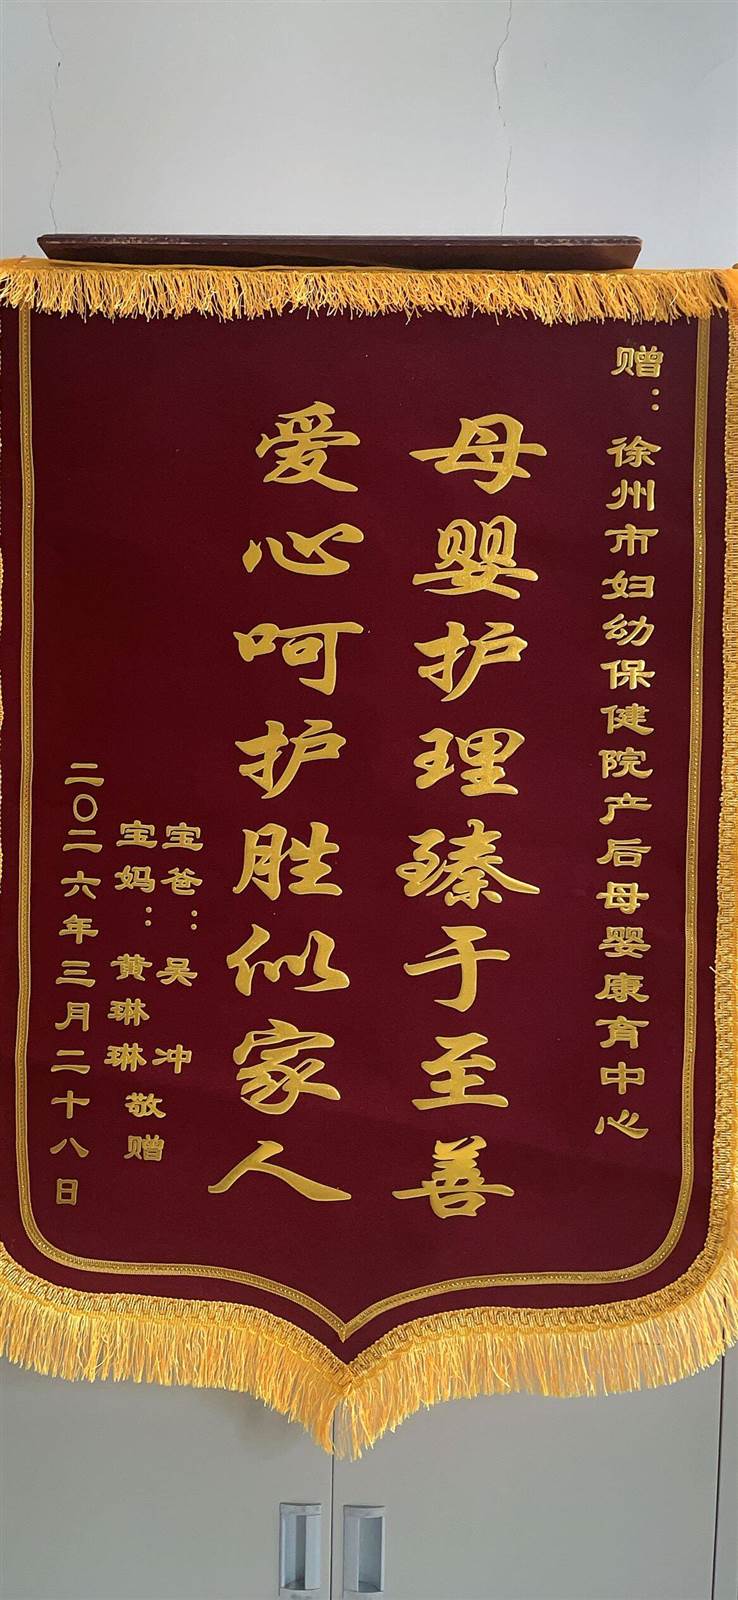 赠：徐州市妇幼保健院产后母婴康育中心
母婴护理臻于至善
爱心呵护胜似家人
宝爸：吴冲
宝妈：黄琳琳敬赠
二〇二六年三月二十八日